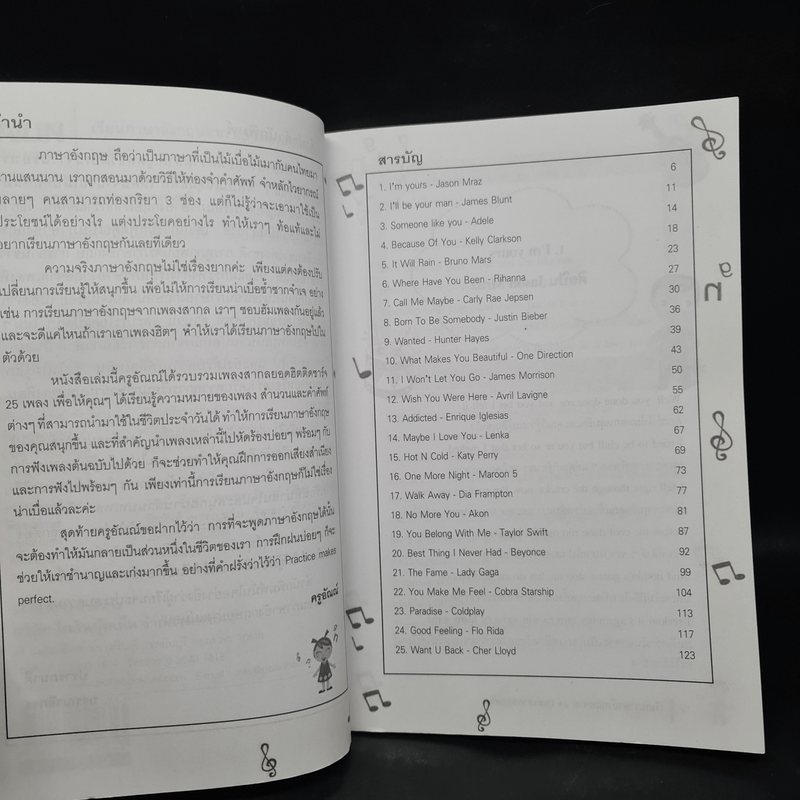 คำนำ
ภาษาอังกฤษ ถือว่าเป็นภาษาที่เป็นไม้เบื่อไม้เมากับคนไทยมา
นานแสนนาน เราถูกสอนมาด้วยวิธีให้ท่องจำคำศัพท์ จำหลักไวยากรณ์
หลายๆ คนสามารถท่องกริยา 3 ช่อง แต่ก็ไม่รู้ว่าจะเอามาใช้เป็น
ประโยชน์ได้อย่างไร แต่งประโยคอย่างไร ทำให้เราๆ ท้อแท้และไม่
อยากเรียนภาษาอังกฤษกันเลยทีเดียว
ความจริงภาษาอังกฤษไม่ใช่เรื่องยากค่ะ เพียงแต่คงต้องปรับ
เปลี่ยนการเรียนรู้ให้สนุกขึ้น เพื่อไม่ให้การเรียนน่าเบื่อซ้ำซากจำเจ อย่าง
เช่น การเรียนภาษาอังกฤษจากเพลงสากล เราๆ ชอบฮัมเพลงกันอยู่แล้ว
และจะดีแค่ไหนถ้าเราเอาเพลงฮิตๆ ทำให้เราได้เรียนภาษาอังกฤษไปใน
ตัวด้วย
หนังสือเล่มนี้ครูอัณณ์ได้รวบรวมเพลงสากลยอดฮิตติดชาร์จ
25 เพลง เพื่อให้คุณๆ ได้เรียนรู้ความหมายของเพลง สำนวนและคำศัพท์
ต่างๆ ที่สามารถนำมาใช้ในชีวิตประจำวันได้ ทำให้การเรียนภาษาอังกฤษ
ของคุณสนุกขึ้น และที่สำคัญนำเพลงเหล่านี้ไปหัดร้องบ่อยๆ พร้อมๆ กับ
การฟังเพลงต้นฉบับไปด้วย ก็จะช่วยทำให้คุณฝึกการออกเสียงสำเนียง
และการฟังไปพร้อมๆ กัน เพียงเท่านี้การเรียนภาษาอังกฤษก็ไม่ใช่เรื่อง
น่าเบื่อแล้วล่ะค่ะ
สุดท้ายครูอัณณ์ขอฝากไว้ว่า การที่จะพูดภาษาอังกฤษได้นั้น
จะต้องทำให้มันกลายเป็นส่วนหนึ่งในชีวิตของเรา การฝึกฝนบ่อยๆ ก็จะ
ช่วยให้เราชำนาญและเก่งมากขึ้น อย่างที่คำฝรั่งว่าไว้ว่า Practice makes
perfect.
ครูอัณณ์
สารบัญ
1. I'm yours - Jason Mraz 6
2. I'll be your man - James Blunt 11
3. Someone like you - Adele 14
4. Because Of You - Kelly Clarkson 18
5. It Will Rain - Bruno Mars 23
6. Where Have You Been - Rihanna 27
7. Call Me Maybe - Carly Rae Jepsen 30
8. Born To Be Somebody - Justin Bieber 36
9. Wanted - Hunter Hayes 39
10. What Makes You Beautiful - One Direction 43
11. I Won't Let You Go - James Morrison 50
12. Wish You Were Here - Avril Lavigne 55
13. Addicted - Enrique Iglesias 62
14. Maybe I Love You - Lenka 67
15. Hot N Cold - Katy Perry 69
16. One More Night - Maroon 5 73
17. Walk Away - Dia Frampton 77
18. No More You - Akon 81
19. You Belong With Me - Taylor Swift 87
20. Best Thing I Never Had - Beyonce 92
21. The Fame - Lady Gaga 99
22. You Make Me Feel - Cobra Starship 104
23. Paradise - Coldplay 113
24. Good Feeling - Flo Rida 117
25. Want U Back - Cher Lloyd 123